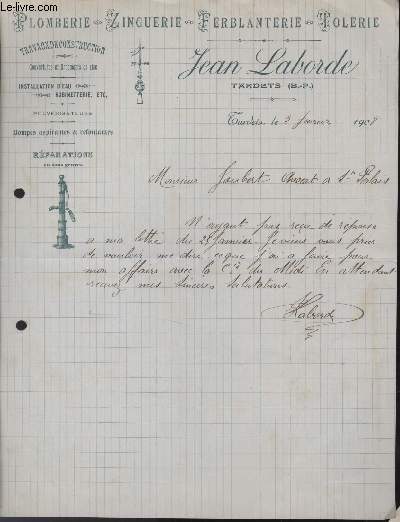 www.le-livre.com
PLOMBERIE - ZINGUERIE - FERBLANTERIE - TOLERIE
TRAVAUX DE CONSTRUCTION
Couvertures et Ornements en zinc
INSTALLATION D'EAU
ROBINETTERIE, ETC.
PULVÉRISATEURS
Pompes aspirantes & refoulantes
RÉPARATIONS
en tous genres
Jean Laborde
TARDETS (B.-P.)
Tardets le 3 février 1908
Monsieur Joubert Avocat a St Palais
N'ayant pas reçue de reponse
a ma lettre du 23 Janvier. Je viens vous prier
de vouloir me dire ce que j'ai a faire pour
mon affaire avec la Cie du Midi En attendant
recevez mes sincères salutations
Laborde